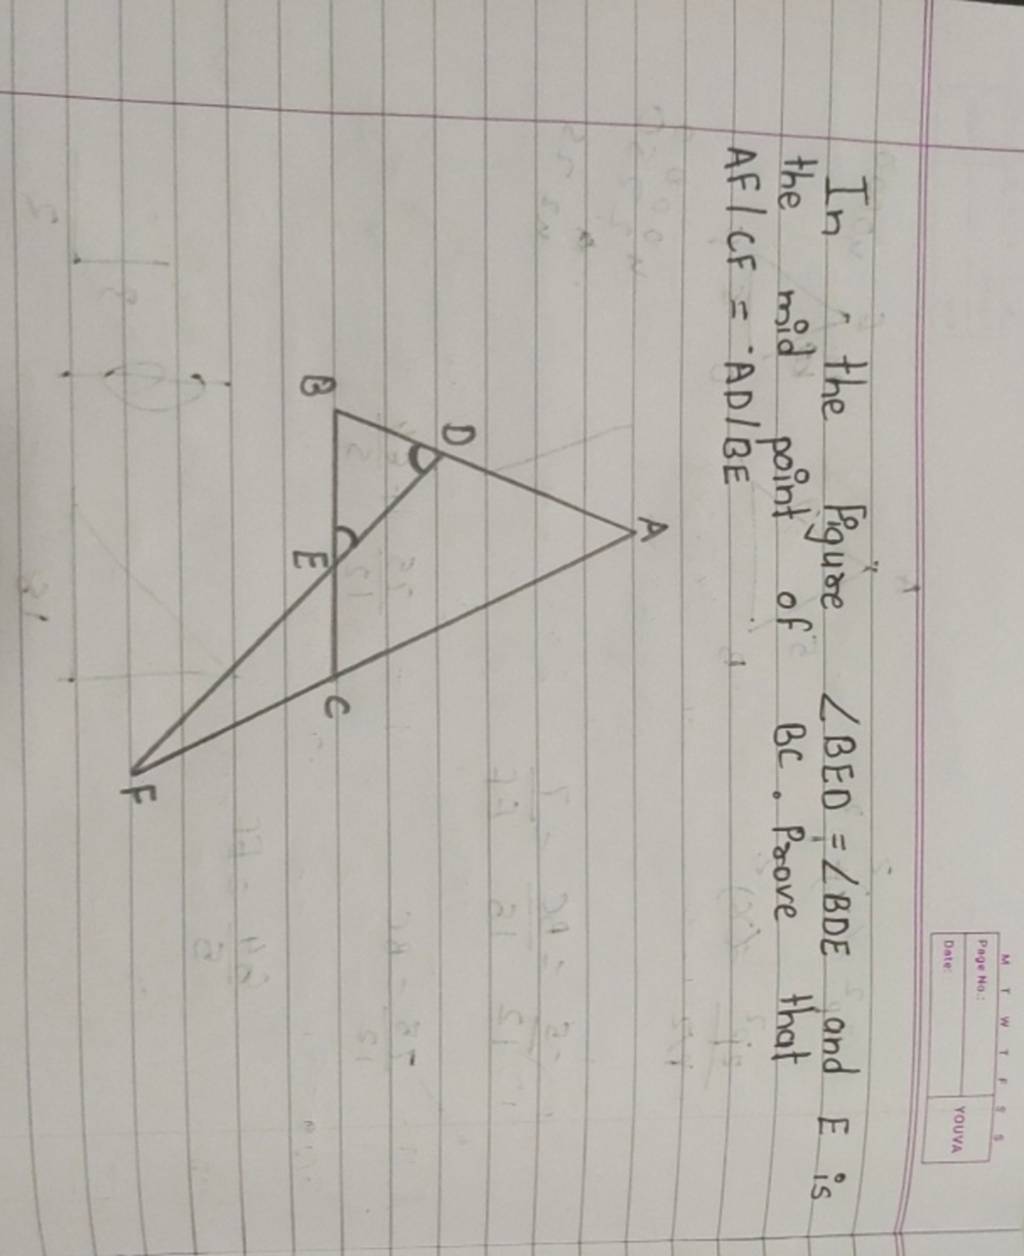 M T W T F S S
Page No.:
Date:
YOUVA
In the figure ∠BED = ∠BDE and E is
the mid point of BC. Prove that
AF/CF = AD/BE
A
D
B
E
C
F